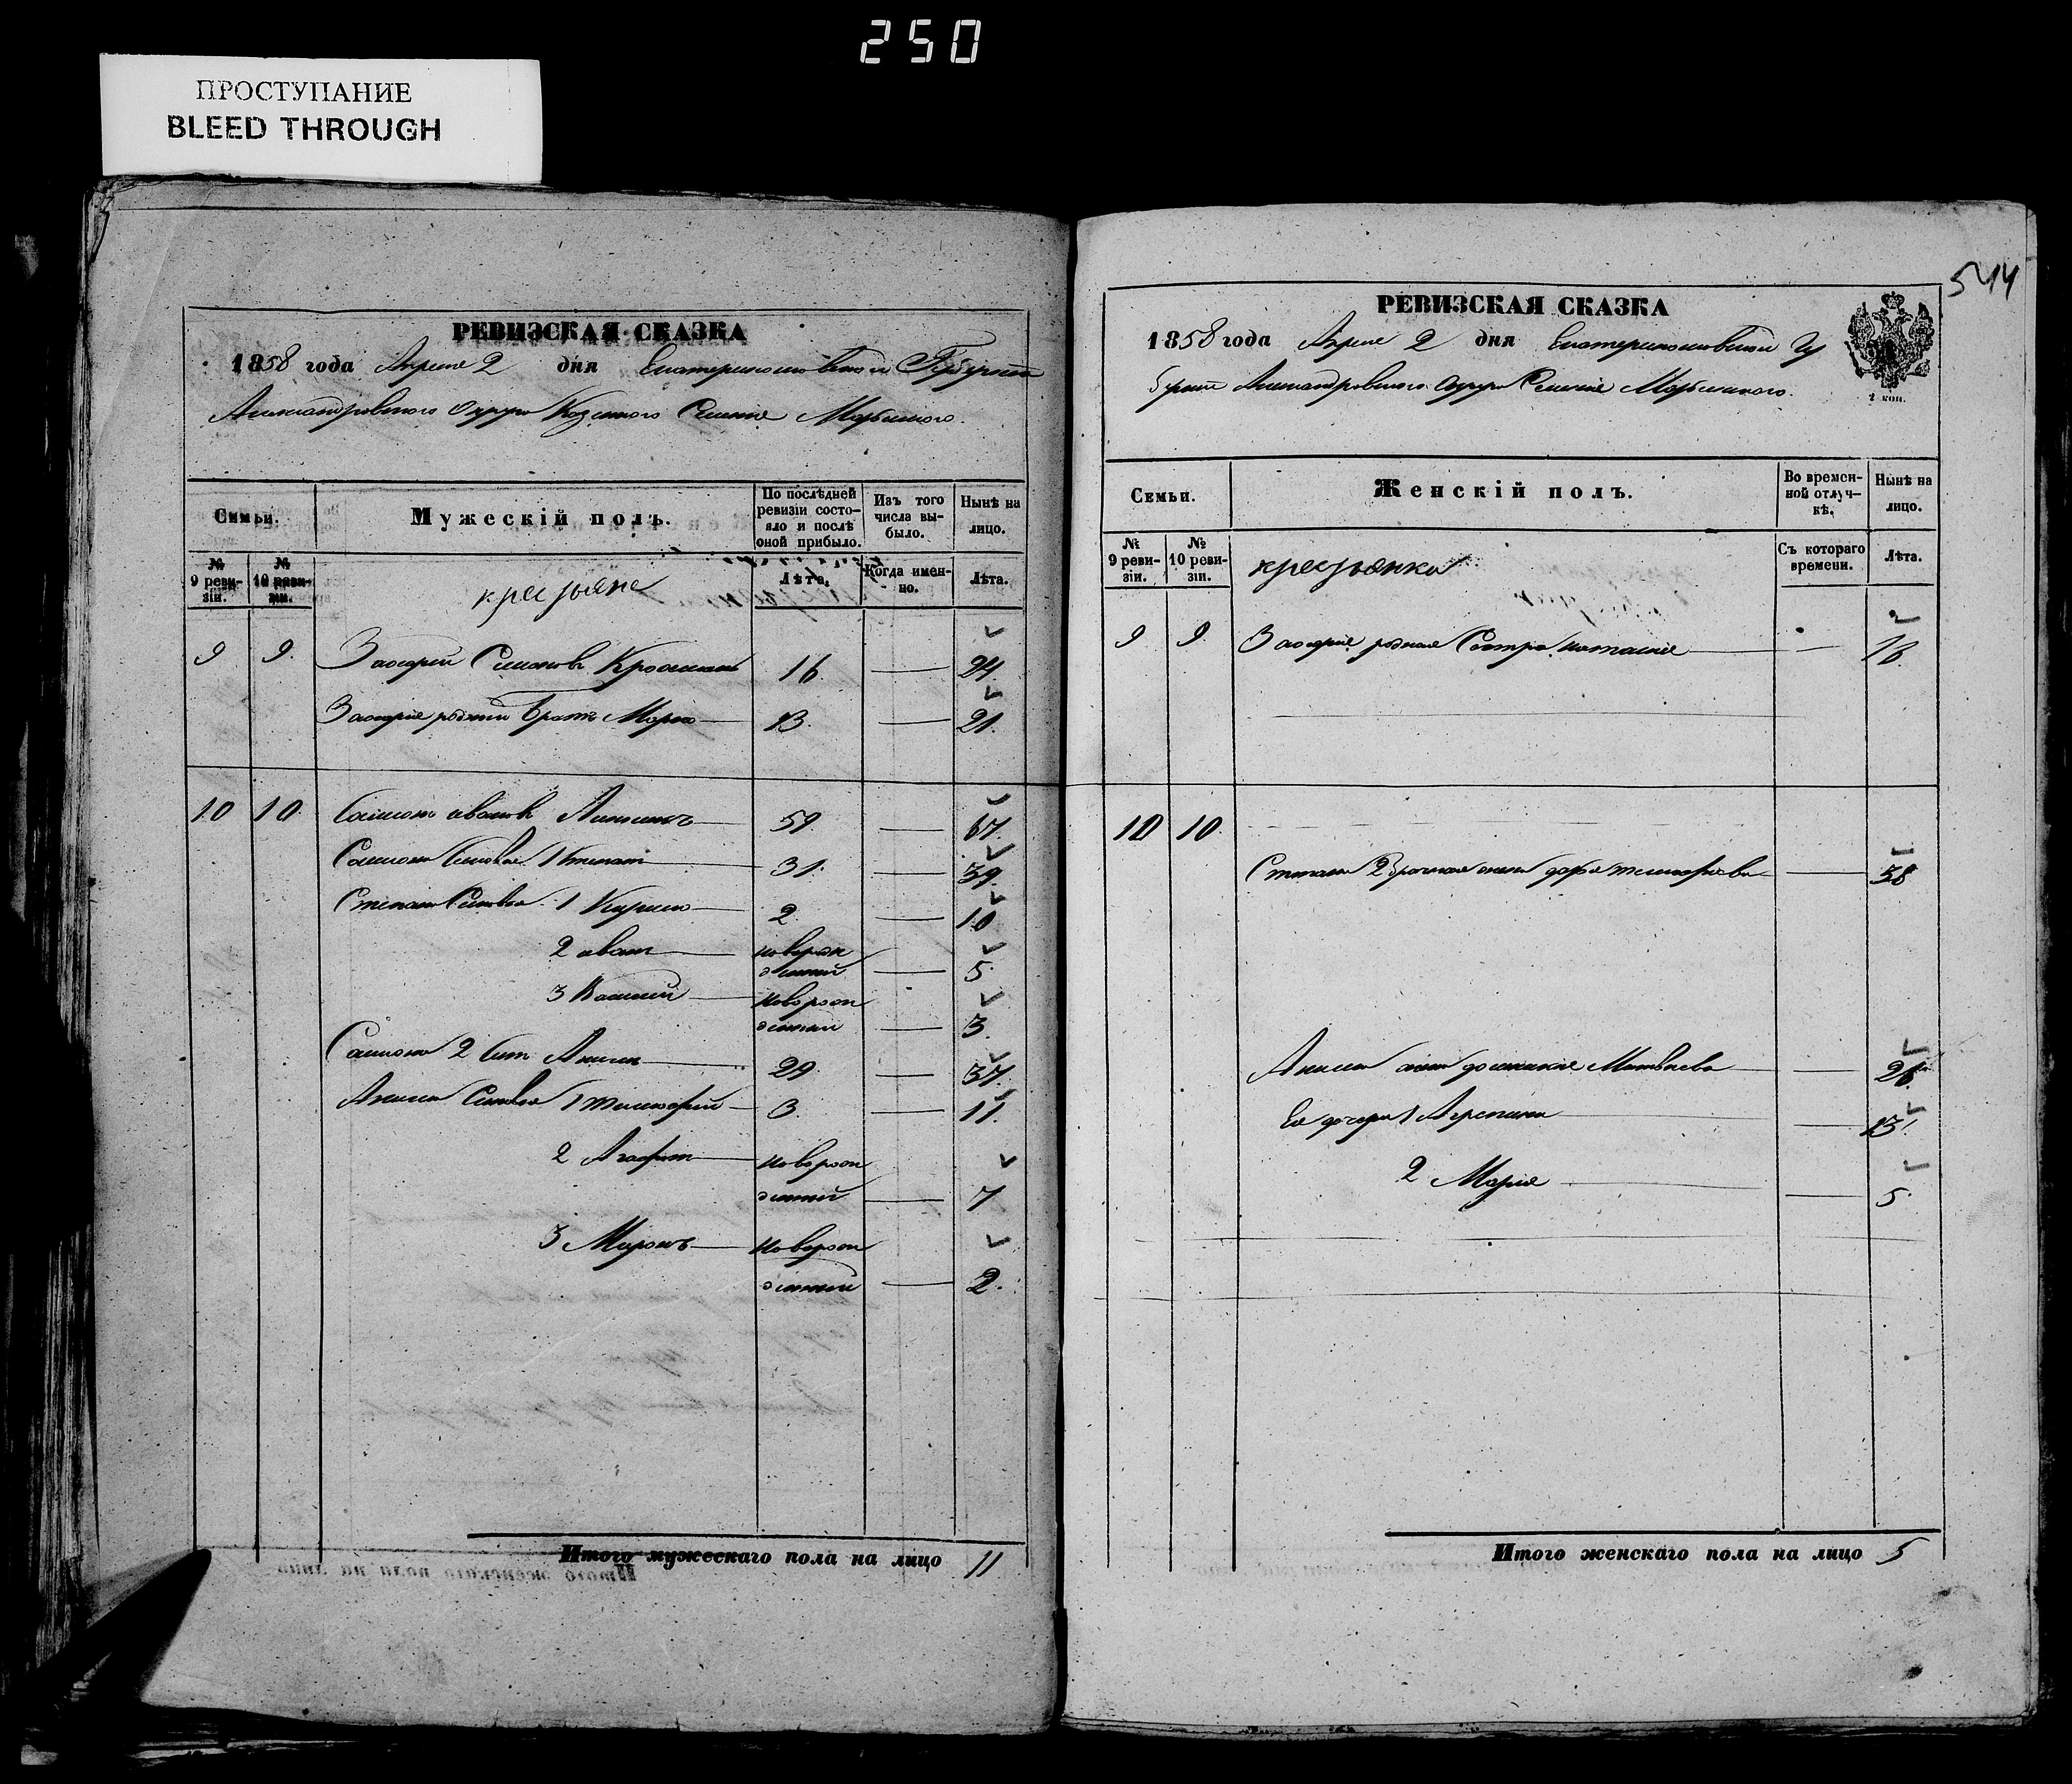 250
ПРОСТУПАНИЕ
BLEED THROUGH
РЕВИЗСКАЯ СКАЗКА
1858 года Апреля 2 дня Екатеринославской Губернии
Александровского Округа Казенного Селения
Семьи.
Мужескій полъ.
По послѣдней ревизіи состояло и послѣ оной прибыло.
Изъ того числа выбыло.
Нынѣ на лицо.
№ 9 ревизіи.
№ 10 ревизіи.
крестьяне
Лѣта.
Когда именно.
Лѣта.
9 9. Захарий Семенов 16 — 24.
Захария родний Братъ Марко — 13. — 21.
10 10. иванов 59. — 67.
Сыновья 1 Степан 31. — 39.
Степана Сыновья 1 Кирило — 2 — 10
2 иван — новорожденний — 5.
3 Василий — новорожденний — 3.
2 Сын 29. — 37.
Сыновья 1 Тимофей — 3. — 11.
2 новорожденний — 7
3 Миронъ — новорожденний — 2.
Итого мужескаго пола на лицо 11
544
РЕВИЗСКАЯ СКАЗКА
1858 года Апреля 2 дня Екатеринославской Гу
бернии Александровского Округа Селения
2 коп.
Семьи.
Женскій полъ.
Во временной отлучкѣ.
Нынѣ на лицо.
№ 9 ревизіи.
№ 10 ревизіи.
крестьянки
Съ котораго времени.
Лѣта.
9 9. Захария родная Сестра —
10 10.
Степана 2 брачная жена — 38
жена Матвеева —
Ее дочери 1 — 13.
2 Мария — 5.
Итого женскаго пола на лицо 5